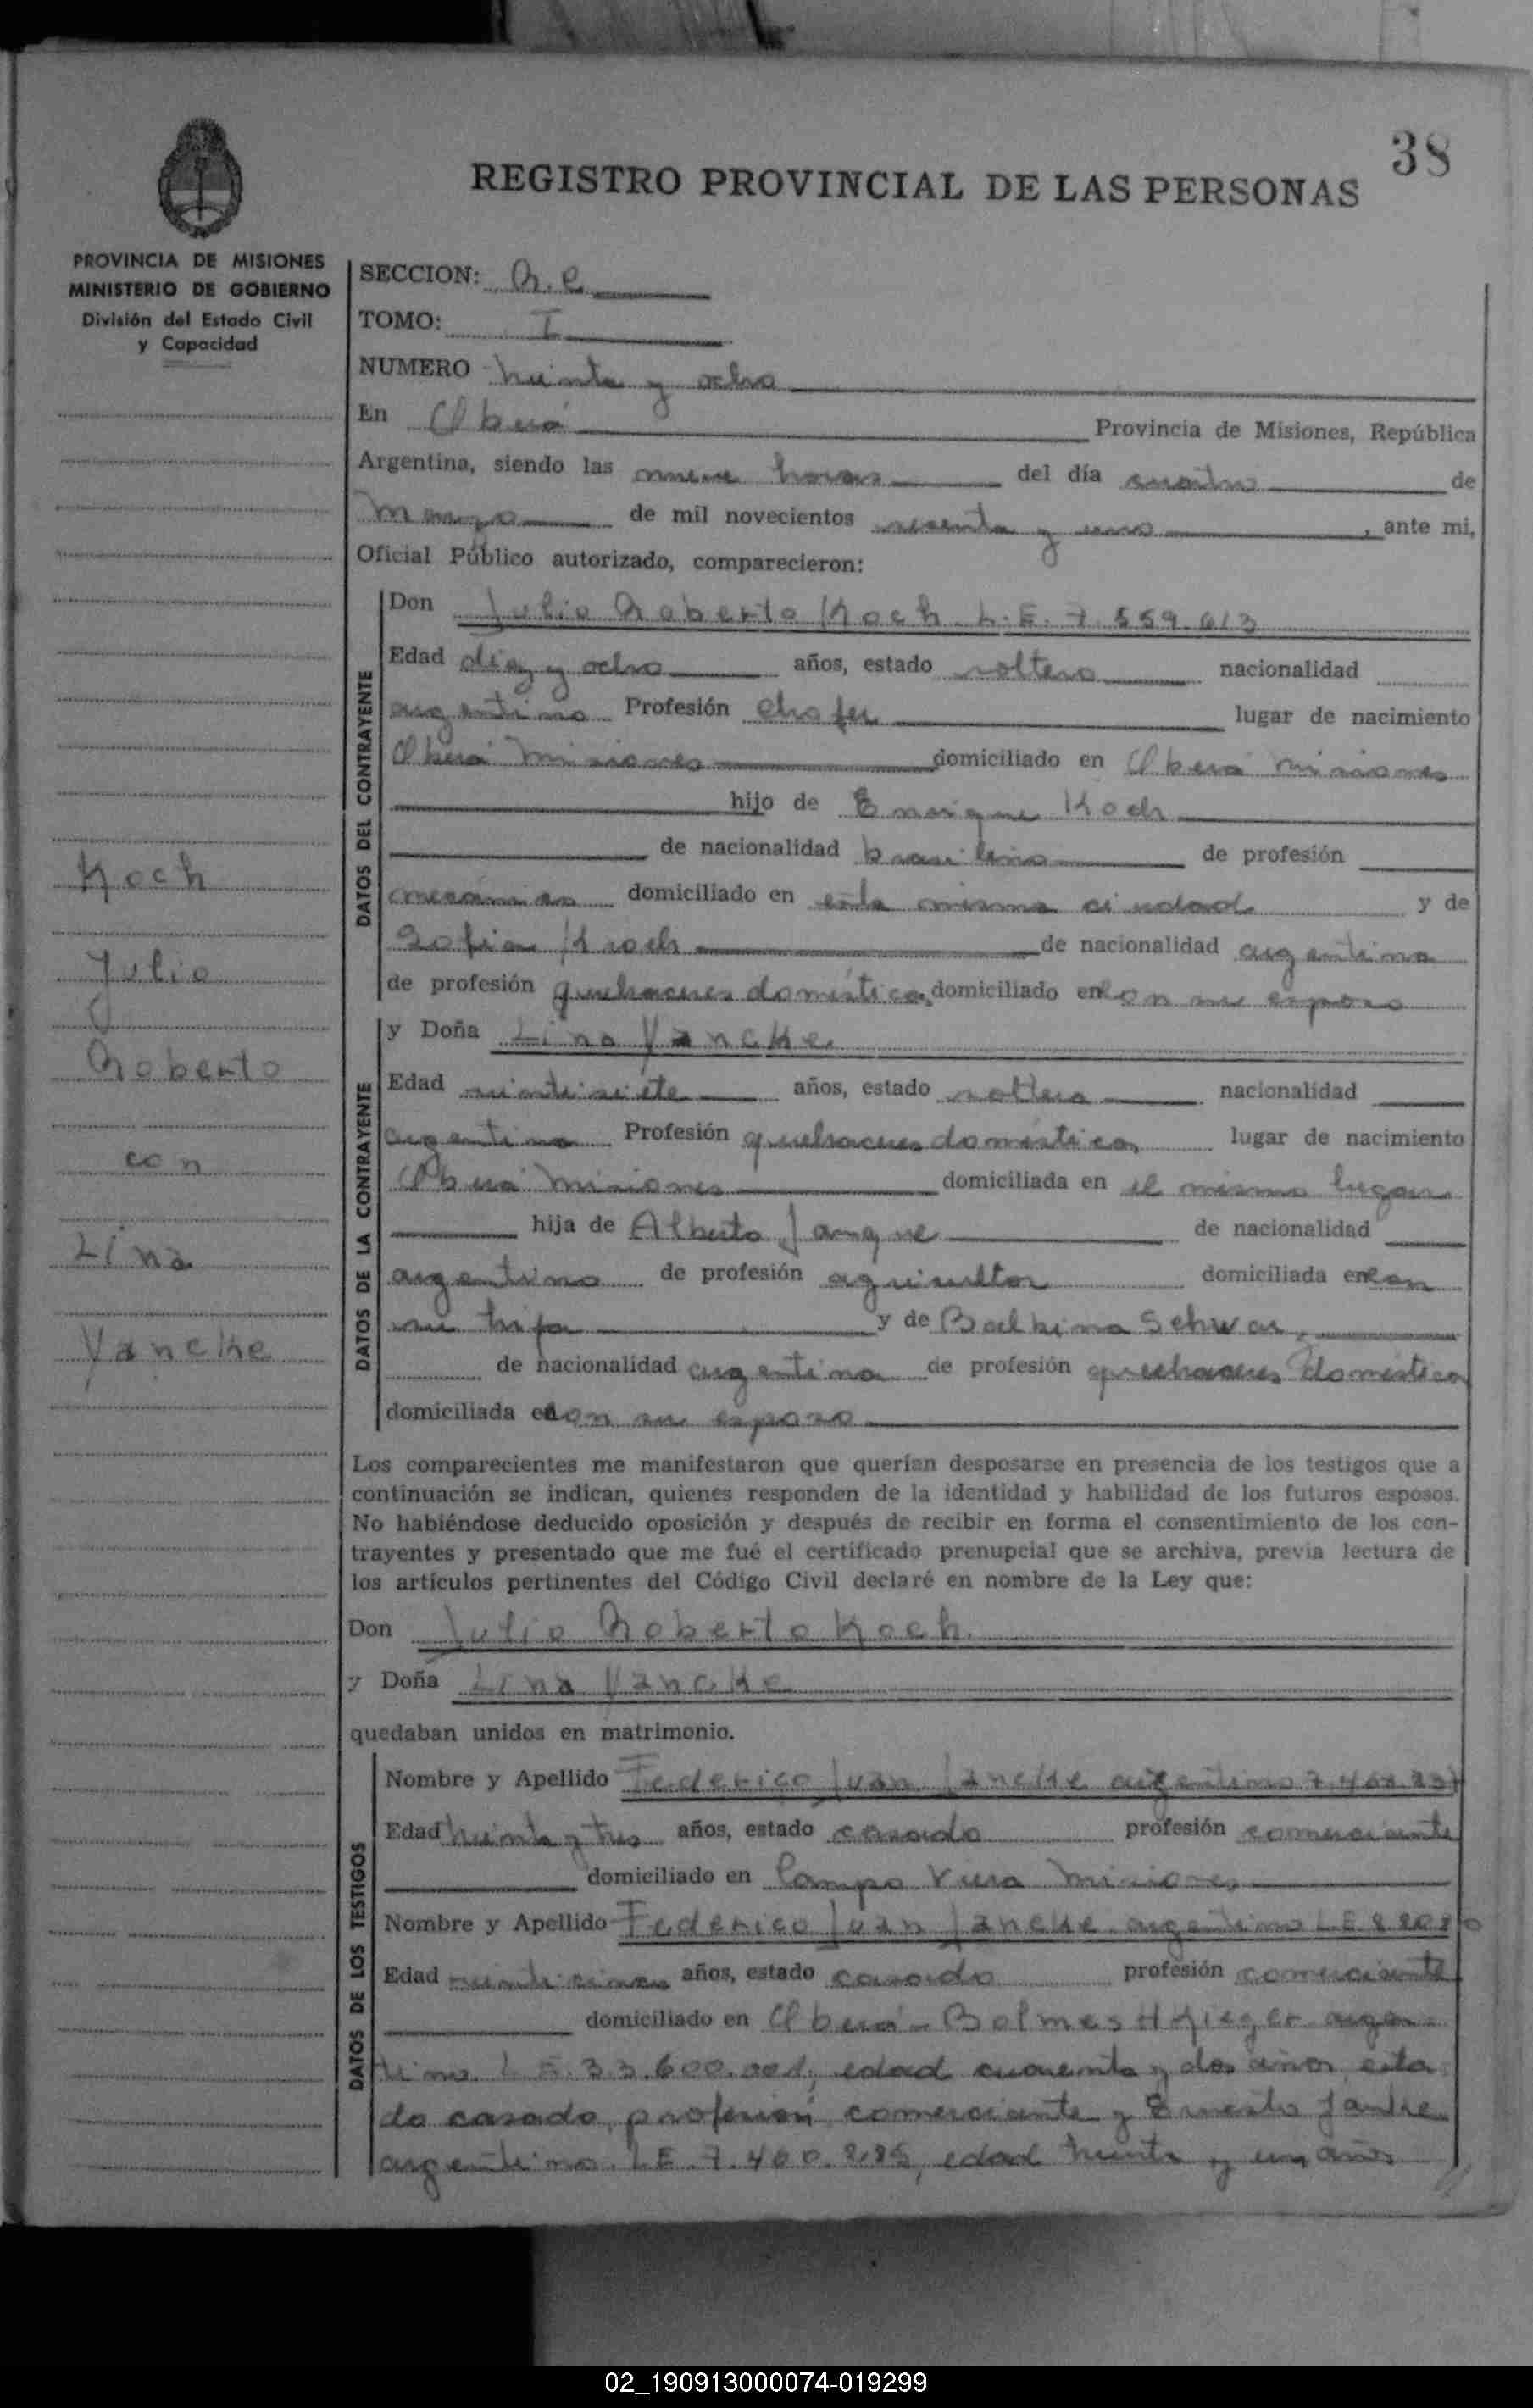 38
REGISTRO PROVINCIAL DE LAS PERSONAS
PROVINCIA DE MISIONES
MINISTERIO DE GOBIERNO
División del Estado Civil
y Capacidad
SECCION:
TOMO: I
NUMERO treinta y ocho
En Oberá Provincia de Misiones, República
Argentina, siendo las nueve horas del día cuatro de
marzo de mil novecientos sesenta y uno, ante mi,
Oficial Público autorizado, comparecieron:
DATOS DEL CONTRAYENTE
Don Julio Roberto Koch L.E. 7.559.613
Edad diez y ocho años, estado soltero nacionalidad
argentino Profesión chofer lugar de nacimiento
Oberá Misiones domiciliado en Oberá Misiones
hijo de Enrique Koch
de nacionalidad brasileño de profesión
mecánico domiciliado en esta misma ciudad y de
Sofia de nacionalidad argentina
de profesión quehaceres domésticos domiciliado en con su esposo
DATOS DE LA CONTRAYENTE
y Doña Lina Yancke
Edad veintisiete años, estado soltera nacionalidad
argentina Profesión quehaceres domésticos lugar de nacimiento
Oberá Misiones domiciliada en el mismo lugar
hija de Alberto de nacionalidad
argentino de profesión agricultor domiciliada en con
su hija y de Balbina
de nacionalidad argentina de profesión quehaceres domésticos
domiciliada en con su esposo
Los comparecientes me manifestaron que querían desposarse en presencia de los testigos que a
continuación se indican, quienes responden de la identidad y habilidad de los futuros esposos.
No habiéndose deducido oposición y después de recibir en forma el consentimiento de los con-
trayentes y presentado que me fué el certificado prenupcial que se archiva, previa lectura de
los artículos pertinentes del Código Civil declaré en nombre de la Ley que:
Don Julio Roberto Koch
y Doña Lina Yancke
quedaban unidos en matrimonio.
DATOS DE LOS TESTIGOS
Nombre y Apellido Federico Juan Jancke argentino
Edad treinta y tres años, estado casado profesión comerciante
domiciliado en Campo Viera Misiones
Nombre y Apellido Federico Juan Jancke argentino L.E.
Edad años, estado casado profesión comerciante
domiciliado en Oberá - argen
tino L.E. 33.600.001, edad cuarenta y dos años, esta
do casado, profesión comerciante y Ernesto
argentino L.E. 7.460.285, edad treinta y un años
Koch
Julio
Roberto
con
Lina
Yancke
02_190913000074-019299